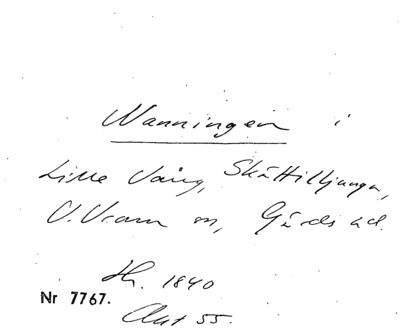 Nanningen i
Lilla Vång, Skättilljunga,
V. Vram sn, Gärds hd.
Hr. 1840
Nr 7767.
Ant 55.